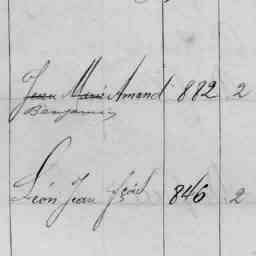 Jean Marie Amand 882 2
Benjamin
Léon Jean fçois 846 2